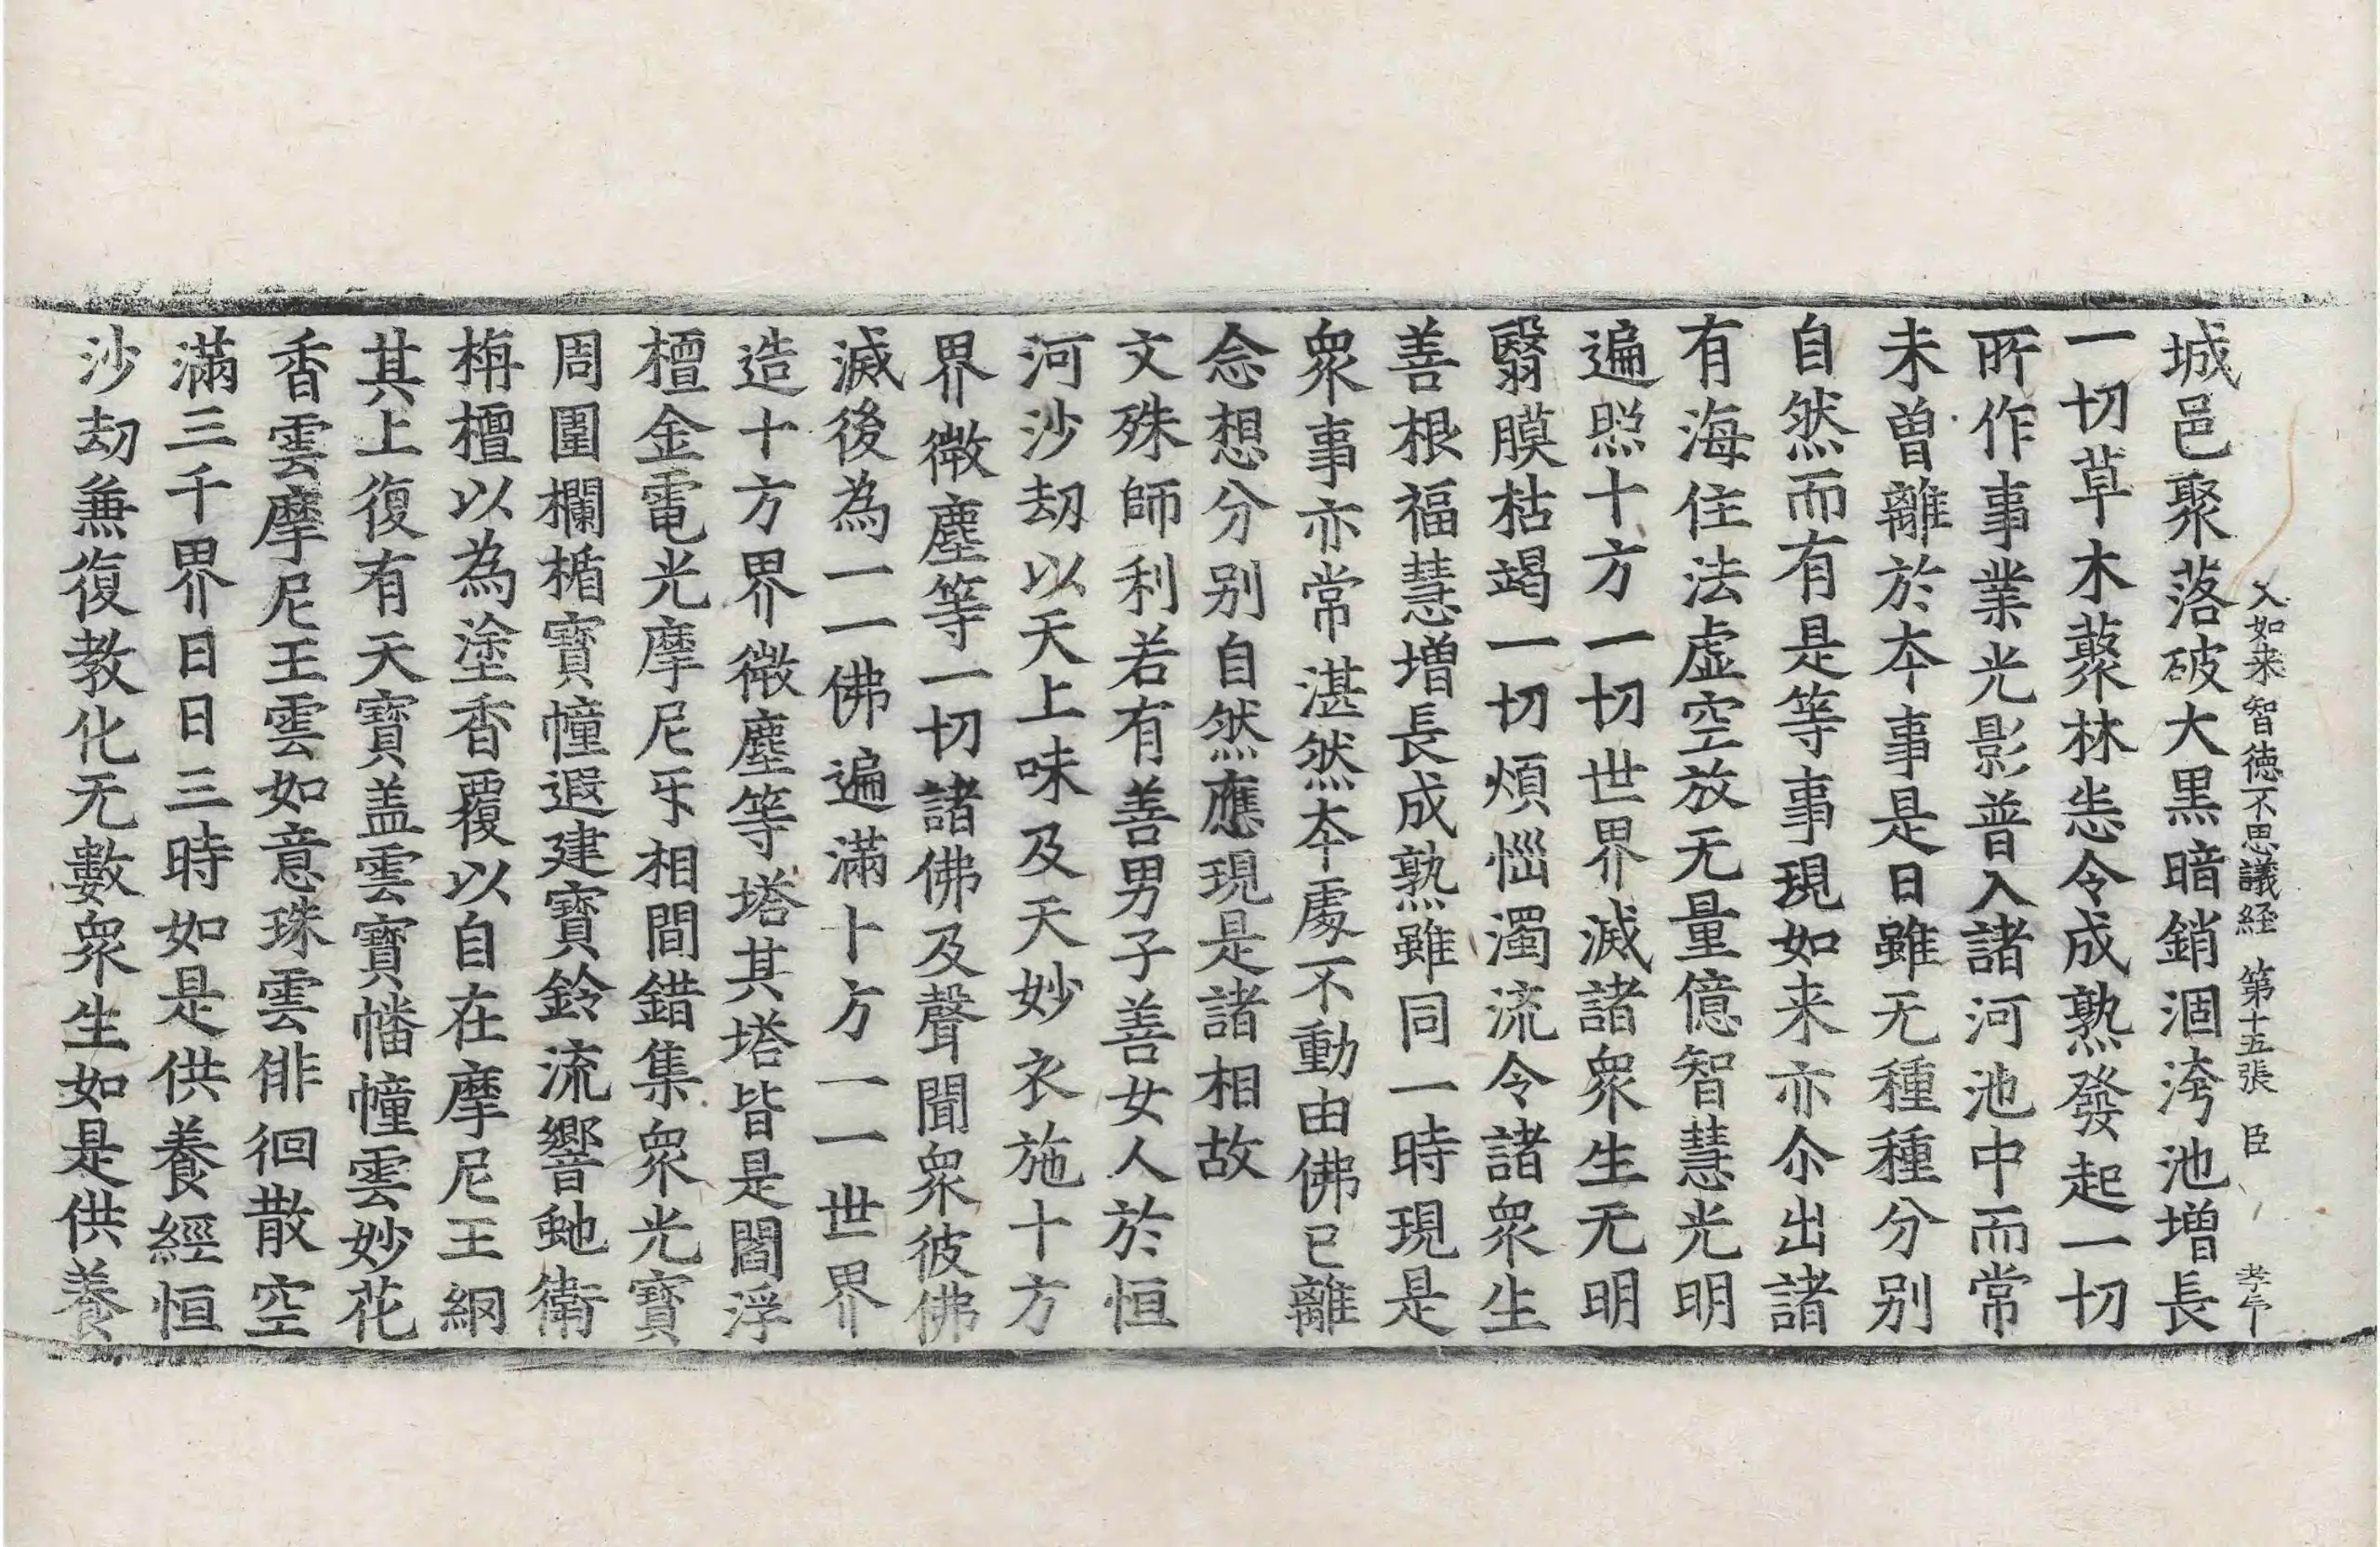 入如来智德不思議経 第十五張 臣
城邑聚落破大黒暗銷涸洿池増長
一切草木藂林恙令成熟發起一切
所作事業光影普入諸河池中而常
未曽離於夲事是日雖无種種分别
自然而有是等事現如来亦尒出諸
有海住法虚空放无量億智慧光明
遍照十方一切世界滅諸衆生无明
翳膜枯竭一切煩惱濁流令諸衆生
善根福慧増長成熟雖同一時現是
衆事亦常湛然夲處不動由佛已離
念想分别自然應現是諸相故
文殊師利若有善男子善女人於恒
河沙劫以天上味及天妙衣施十方
界微塵等一切諸佛及聲聞衆彼佛
滅後為一一佛遍滿十方一一世界
造十方界微塵等塔其塔皆是閻浮
檀金電光摩尼㸦相間錯集衆光寶
周圍欄楯寶幢遐建寶鈴流響虵衛
栴檀以為塗香覆以自在摩尼王網
其上復有天寶盖雲寶幡幢雲妙花
香雲摩尼王雲如意珠雲俳徊散空
滿三千界日日三時如是供養經恒
沙劫兼復教化无數衆生如是供養